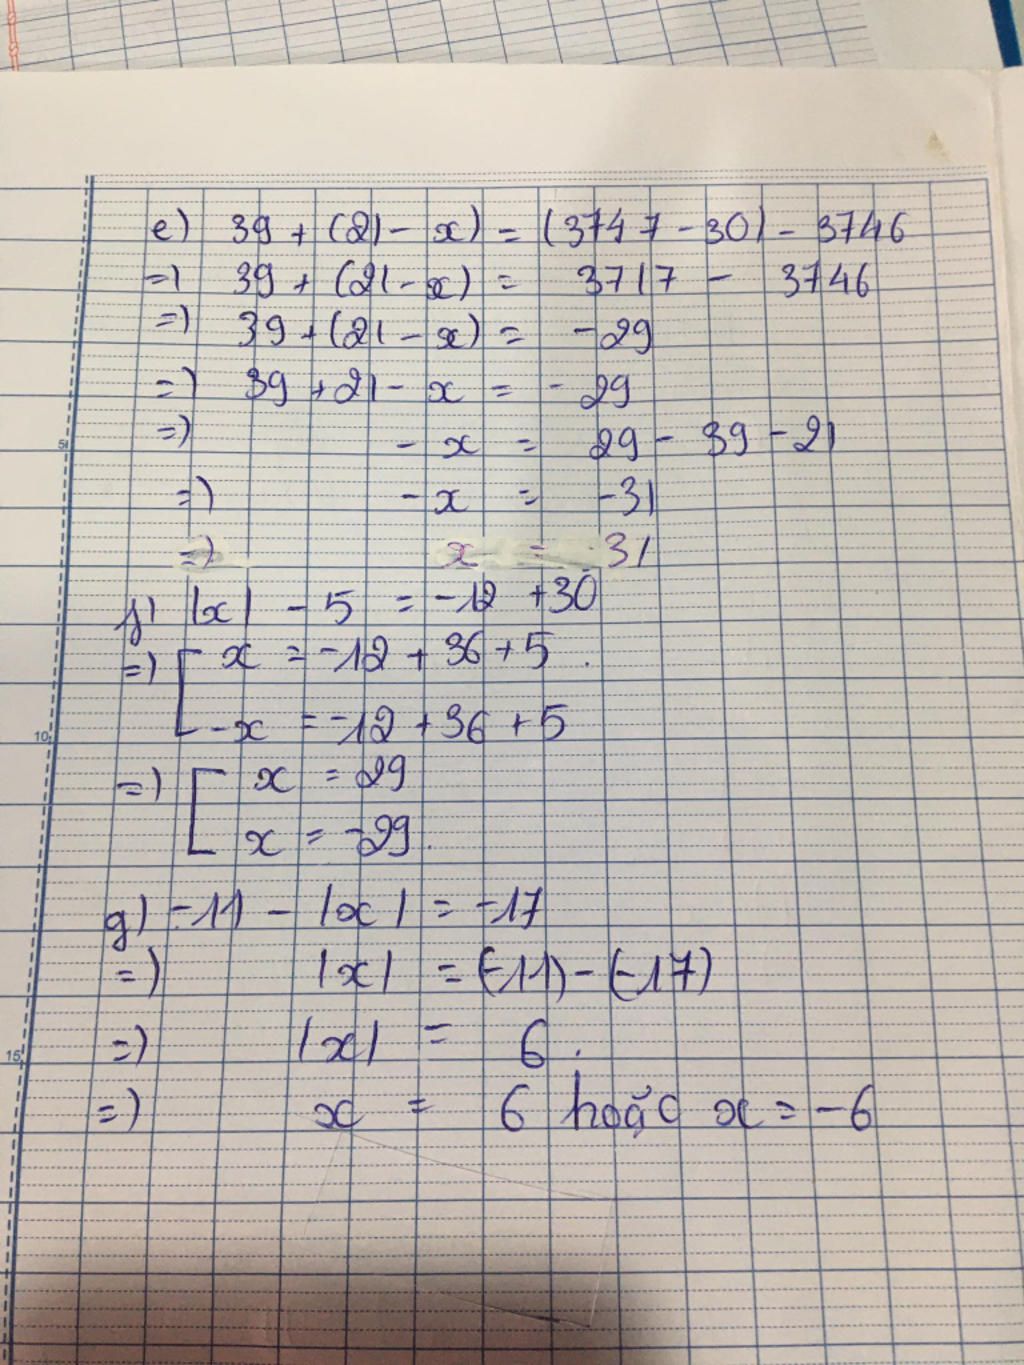 e) 39 + (21 - x) = (3747 - 30) - 3746
=) 39 + (21 - x) = 3717 - 3746
=) 39 + (21 - x) = -29
=) 39 + 21 - x = - 29
=) - x = 29 - 39 - 21
5
=) - x = -31
=) x = 31
f) |x| - 5 = -12 + 30
=) [ x = -12 + 36 + 5 .
10
-x = -12 + 36 + 5
=) [ x = 29
x = -29.
g) -11 - |x| = -17
=) |x| = (-11) - (-17)
=) |x| = 6 .
15
=) x = 6 hoặc x = -6